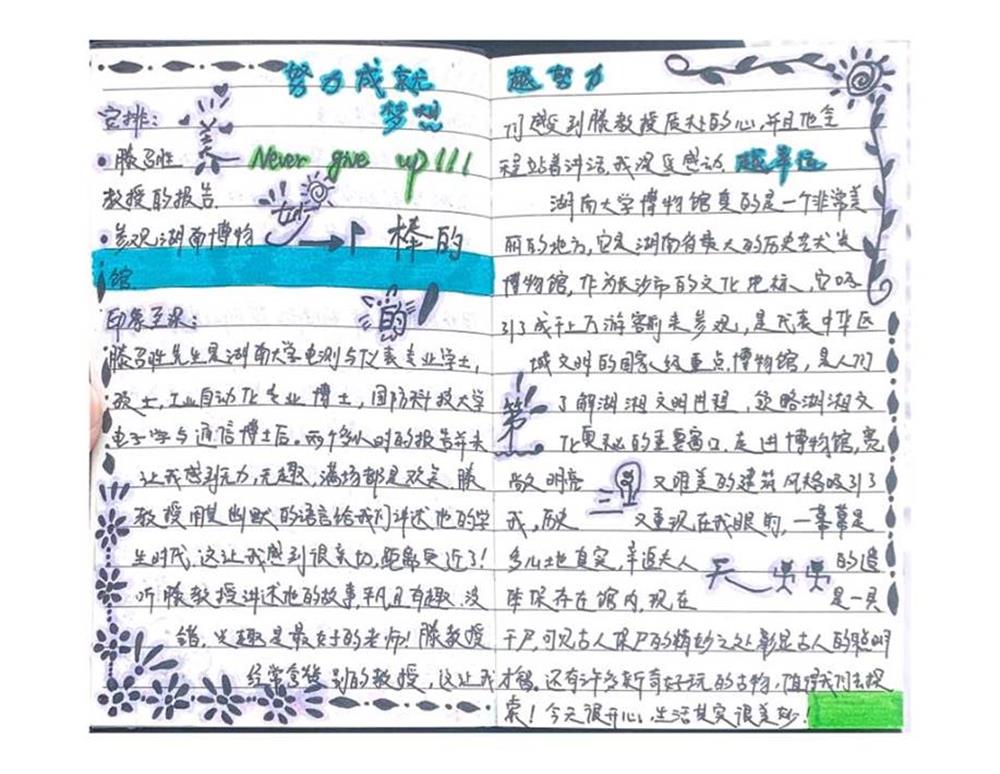 努力成就
梦想
安排：
美
• 滕召胜
Never give up!!!
教授的报告
妙
• 参观湖南博物
棒的
馆
的
印象至深：
滕召胜先生是湖南大学电测与仪表专业学士，
硕士，工业自动化专业博士，国防科技大学
电子学与通信博士后。两个多小时的报告并未
让我感到无力，无趣，满场都是欢笑。滕
教授用其幽默的语言给我们讲述他的学
生时代，这让我感到很亲切，距离更近了！
听滕教授讲述他的故事，平凡且有趣。没
错，兴趣是最好的老师！滕教授
经常会 别的教授，这让我
越努力
们感受到滕教授质朴的心，并且他全
程站着讲话，我深受感动。
越幸运
湖南大学博物馆真的是一个非常美
丽的地方，它是湖南省最大的历史艺术类
博物馆，作为长沙市的文化地标，它吸
引了成千上万游客前来参观，是代表中华区
域文明的国家级重点博物馆，是人们
第一
了解湖湘文明进程、领略湖湘文
化奥秘的重要窗口。走进博物馆，宽
敞明亮 又唯美的建筑风格吸引了
我，历史 又重现在我眼前，一幕幕是
多么地真实，辛追夫人 的遗
天
体保存在馆内，现在 是一具
干尸，可见古人保尸的精妙之处彰显古人的聪明
才智。还有许多新奇好玩的古物，值得我们去探
索！今天很开心，生活其实很美妙！